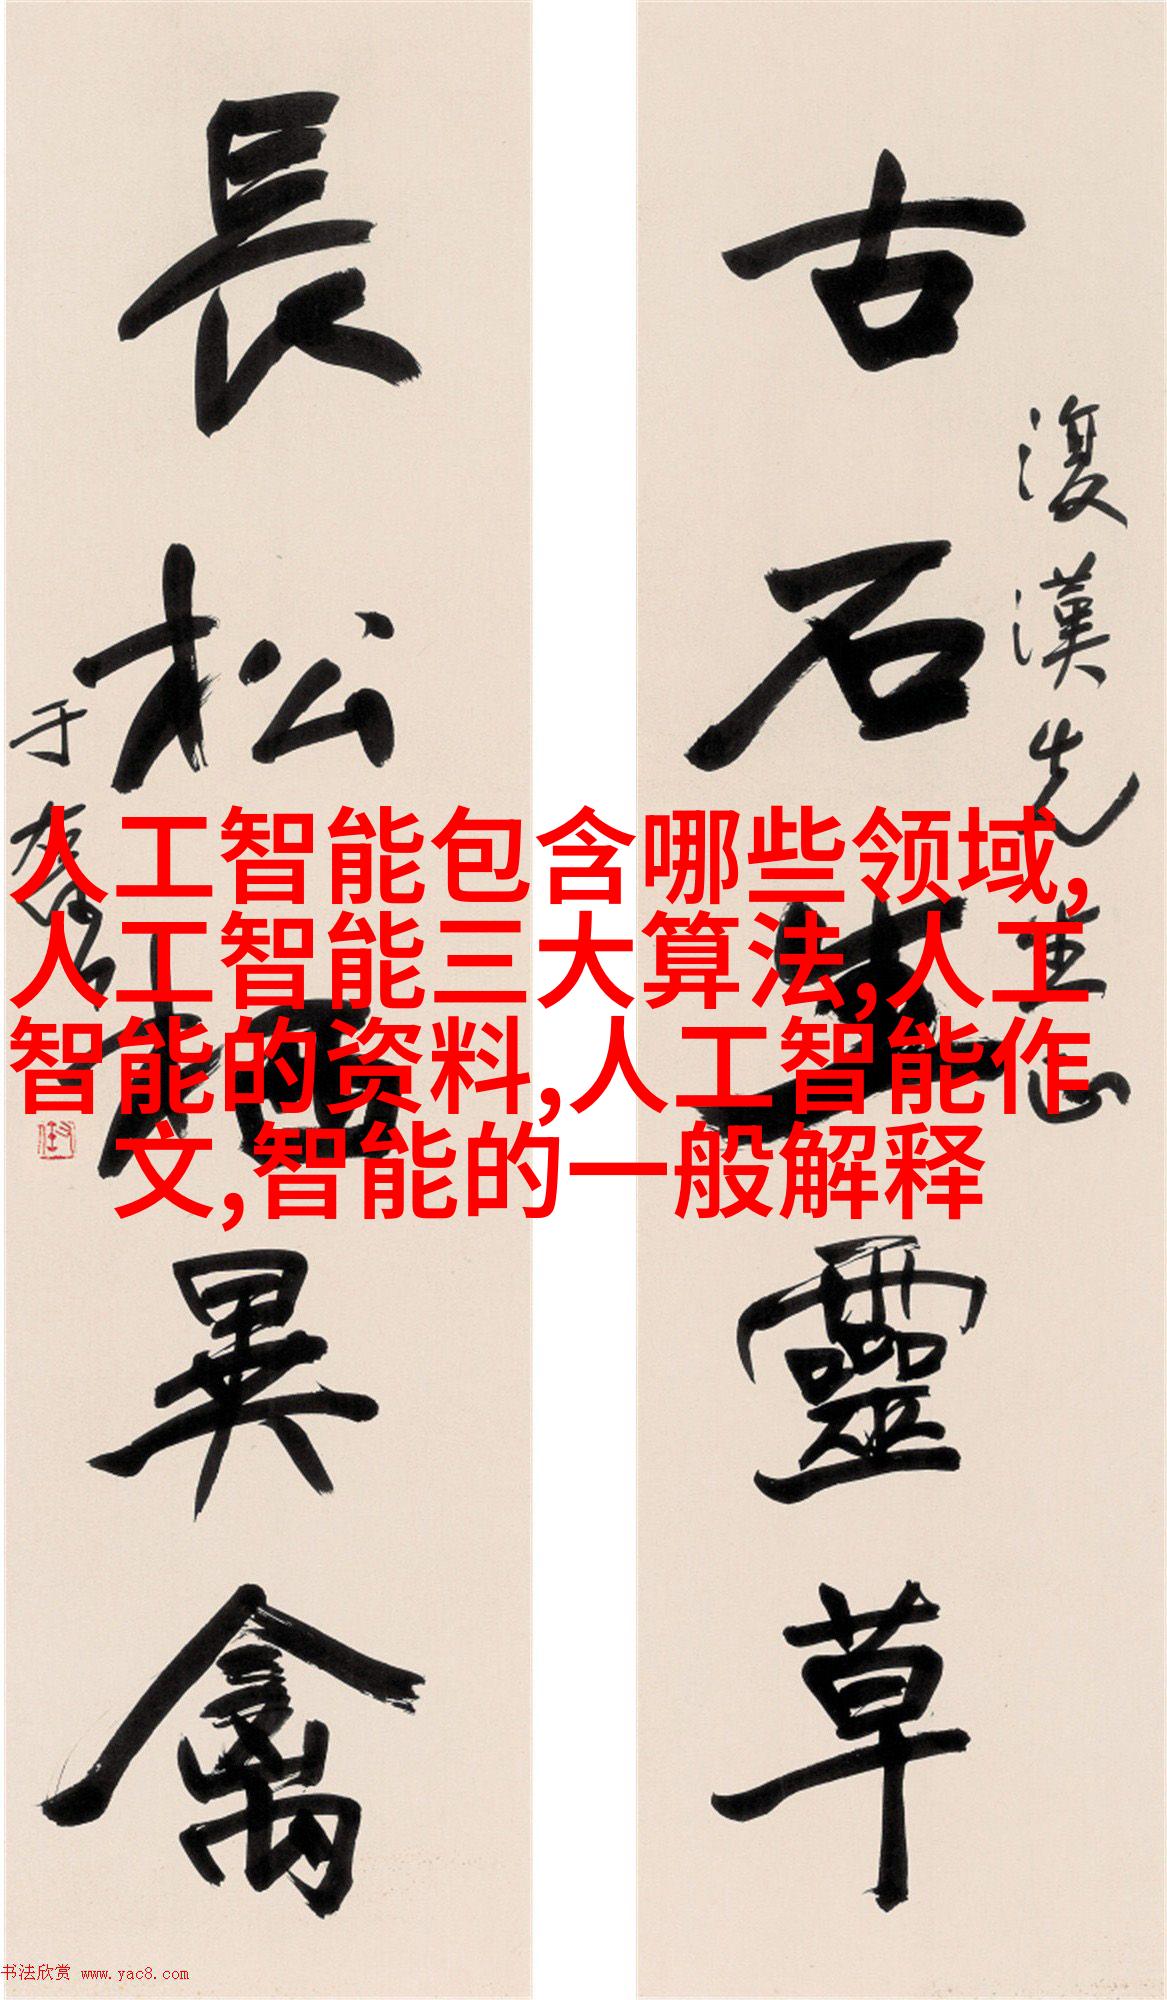 古石生靈草
復漢先生正
長松栖異禽
于右任
人工智能包含哪些领域,
人工智能三大算法,人工
智能的资料,人工智能作
文,智能的一般解释
书法欣赏 www.yac8.com